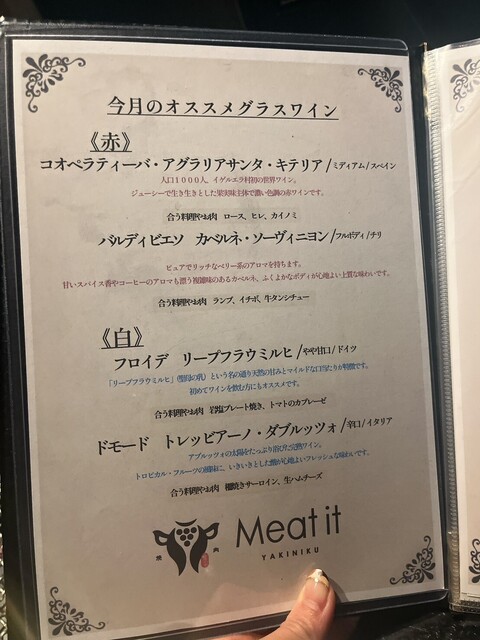 今月のオススメグラスワイン
《赤》
コオペラティーバ・アグラリアサンタ・キテリア/ミディアム/スペイン
人口1000人、イゲルエラ村初の世界ワイン。
ジューシーで生き生きとした果実味主体で濃い色調の赤ワインです。
合う料理やお肉 ロース、ヒレ、カイノミ
バルディビエソ カベルネ・ソーヴィニヨン/フルボディ/チリ
ピュアでリッチなベリー系のアロマを持ちます。
甘いスパイス香やコーヒーのアロマも漂う複雑味のあるカベルネ、ふくよかなボディが心地よい上質な味わいです。
合う料理やお肉 ランプ、イチボ、牛タンシチュー
《白》
フロイデ リープフラウミルヒ/やや甘口/ドイツ
「リープフラウミルヒ」(聖母の乳)という名の通り天然の甘みとマイルドな口当たりが特徴です。
初めてワインを飲む方にもオススメです。
合う料理やお肉 岩塩プレート焼き、トマトのカプレーゼ
ドモード トレッビアーノ・ダブルッツォ/辛口/イタリア
アブルッツォの太陽をたっぷり浴びた完熟ワイン。
トロピカル・フルーツの風味に、いきいきとした酸が心地よいフレッシュな味わいです。
合う料理やお肉 櫃焼きサーロイン、生ハムチーズ
焼 肉
Meat it
YAKINIKU